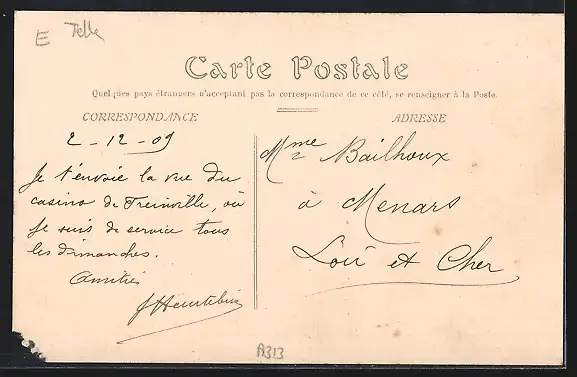 E Telle
Carte Postale
Quelques pays étrangers n'acceptant pas la correspondance de ce côté, se renseigner à la Poste.
CORRESPONDANCE
2-12-09
Je t'envoie la vue du
casino de Freinville, où
je suis de service tous
les dimanches.
Amitiés
JHeurtebise
ADRESSE
Mme Bailhoux
à Menars
Loir et Cher
A313